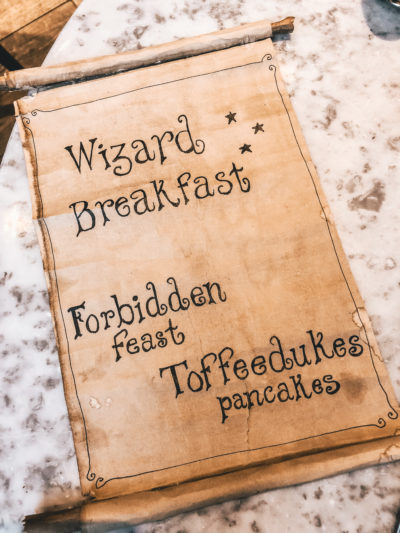 Wizard
Breakfast
Forbidden
feast
Toffeedukes
pancakes